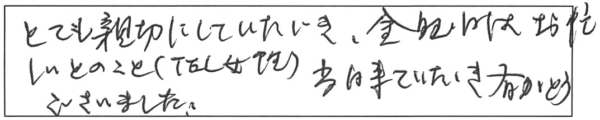 とても親切にしていただき、金曜日はお忙
しいとのこと(TEL女性)当日来ていただき有がとう
ございました。